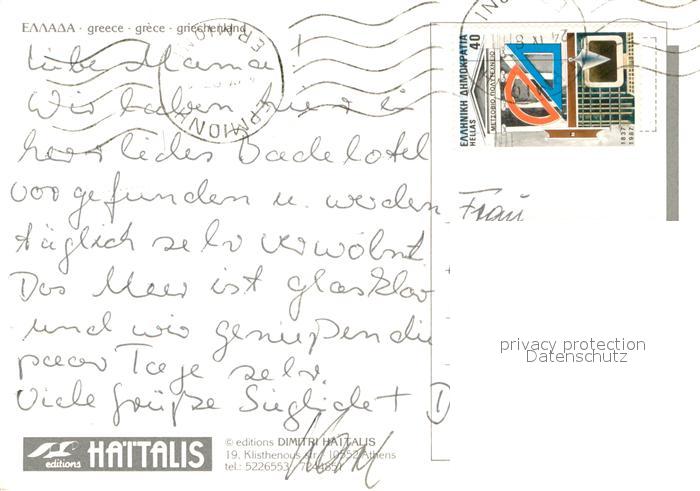 ΕΛΛΑΔΑ · greece · grèce · griechenland
Liebe Mama!
Wir haben hier ein
herrliches Badehotel
vorgefunden u. werden
täglich sehr verwöhnt
Das Meer ist glasklar
und wir genießen die
paar Tage sehr.
Viele Grüße Sieglinde + D
ΕΡΜΙΟΝΗ
ΕΛΛΗΝΙΚΗ ΔΗΜΟΚΡΑΤΙΑ
HELLAS
40
ΜΕΤΣΟΒΙΟ ΠΟΛΥΤΕΧΝΕΙΟ
1837
1987
Frau
privacy protection
Datenschutz
editions HAÏTALIS
© editions DIMITRI HAÏTALIS
19, Klisthenous str. 10552 Athens
tel.: 5226553 - 7244851